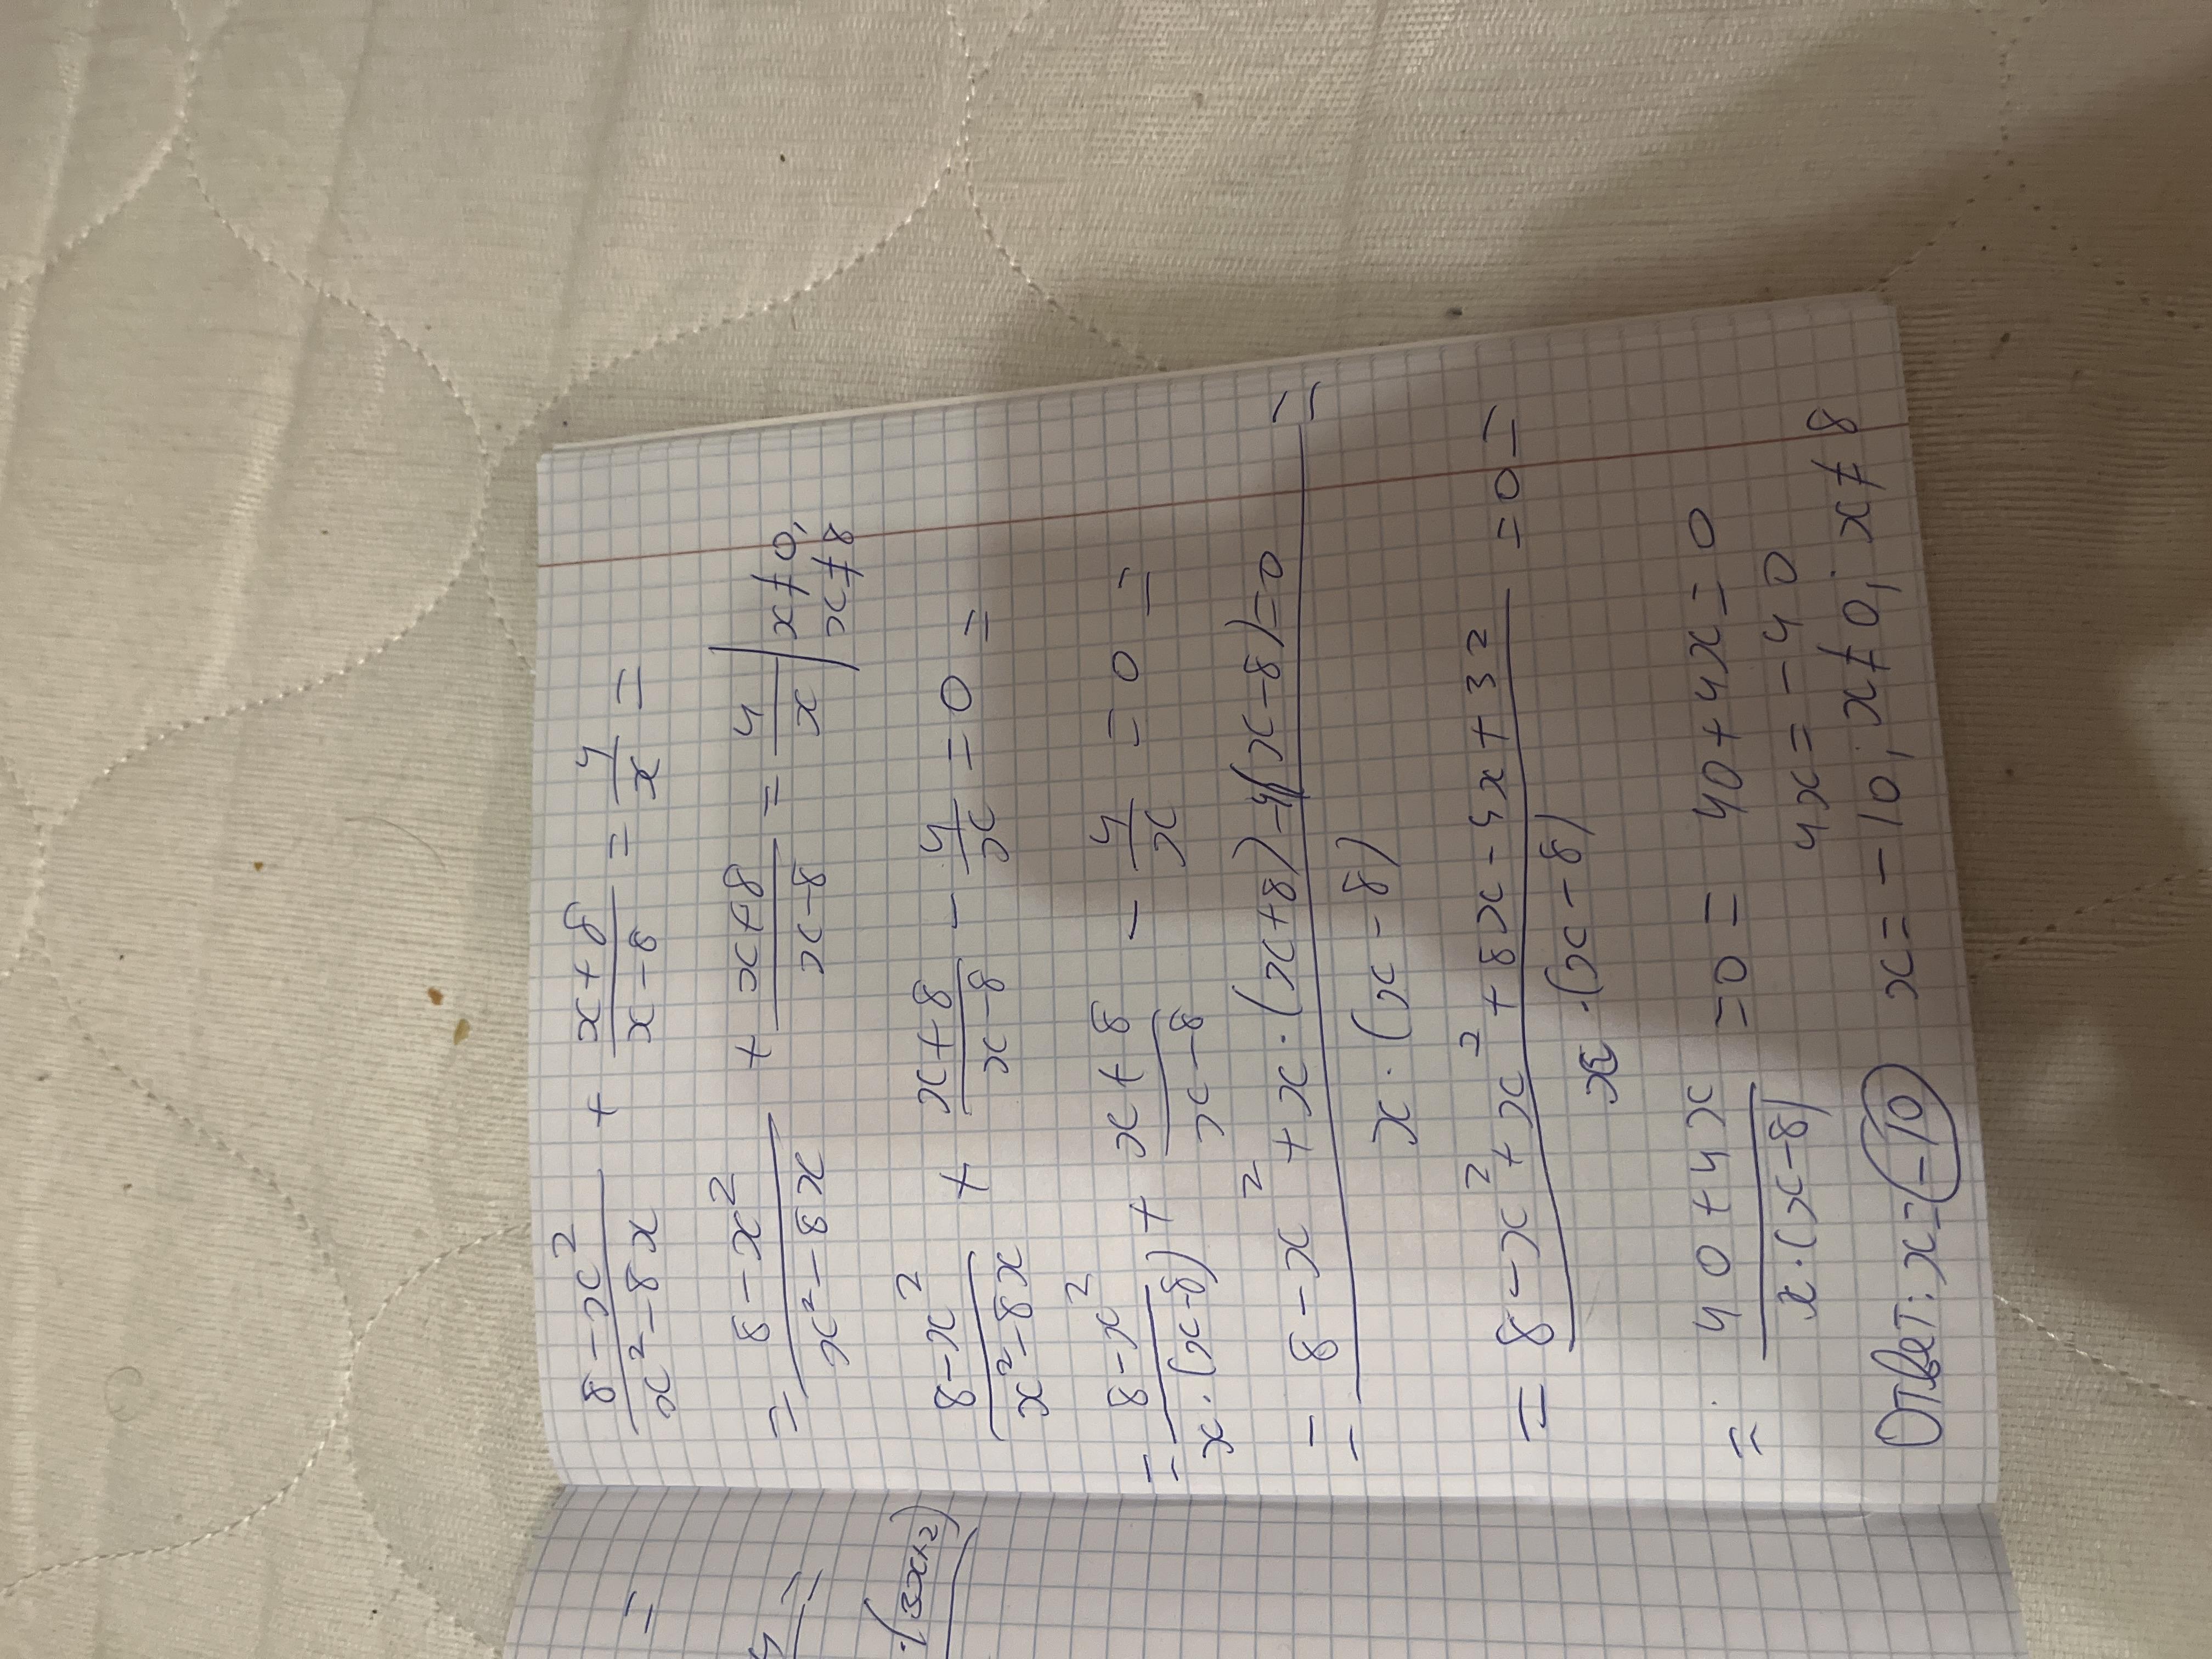 (8-x²)/(x²-8x) + (x+8)/(x-8) = 4/x =
= (8-x²)/(x²-8x) + (x+8)/(x-8) = 4/x | x≠0, x≠8
(8-x²)/(x²-8x) + (x+8)/(x-8) - 4/x = 0 =
= (8-x²)/(x·(x-8)) + (x+8)/(x-8) - 4/x = 0 =
= (8-x²+x·(x+8)-4(x-8)=0)/(x·(x-8)) =
= (8-x²+x²+8x-4x+32)/(x·(x-8)) = 0 =
= (40+4x)/(x·(x-8)) = 0 = 40+4x=0
4x=-40
Ответ: x=-10 x=-10; x≠0; x≠8
=
4 =
·(3x+2)